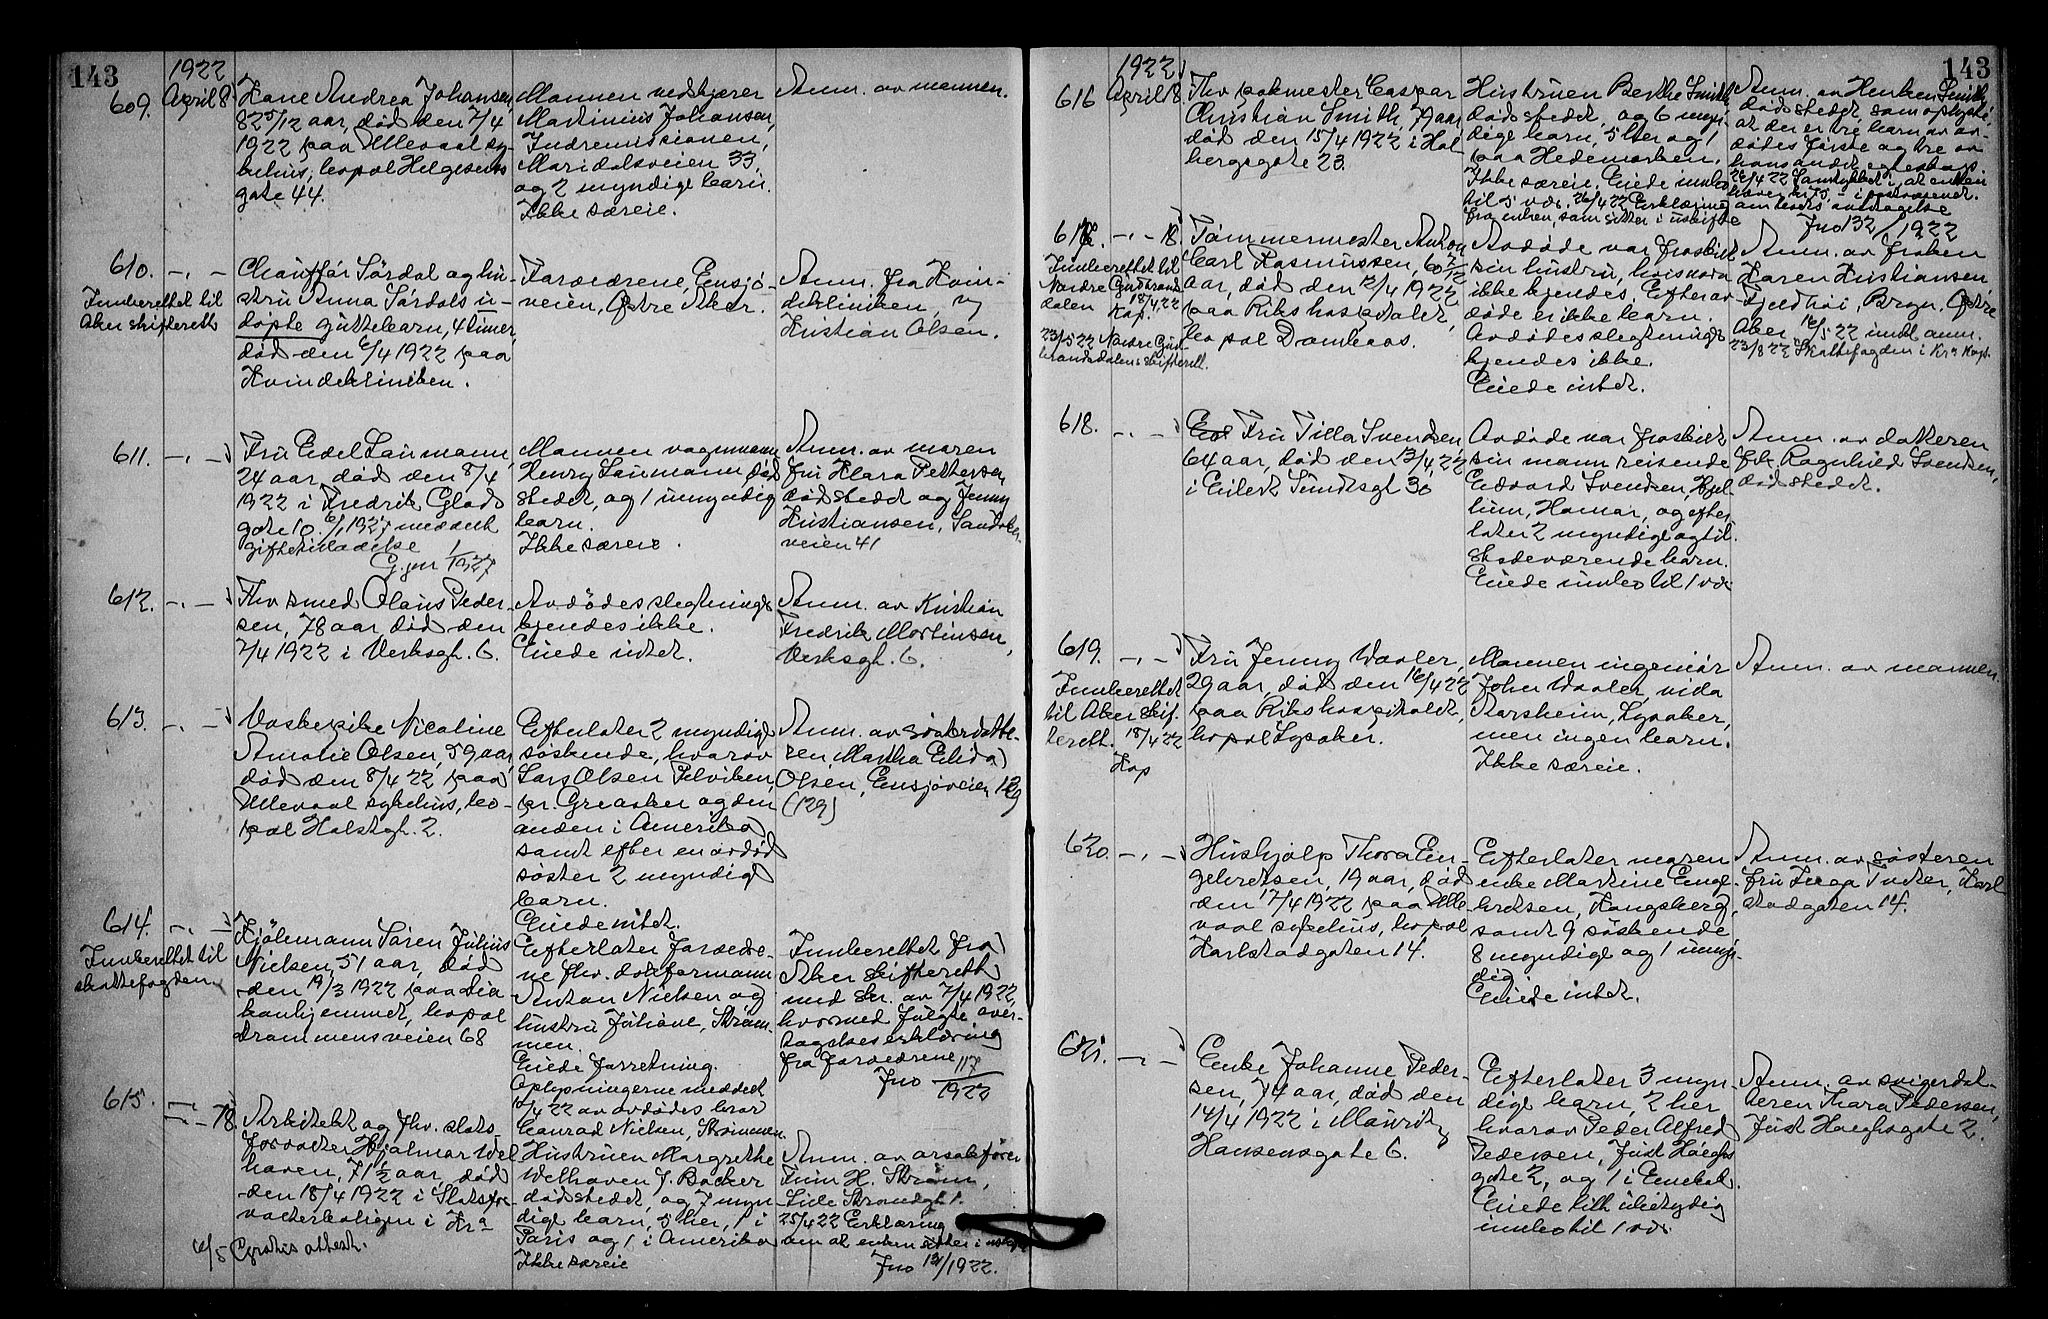 143
1922
609. April 8.
Hane Andrea Johansen,
82 5/12 aar, død den 7/4
1922 paa Ullevaal sy-
kehus, bopæl Helgesens
gate 44.
Mannen vedskjærer
Martinius Johansen,
Indremissionen,
Maridalsveien 33
og 2 myndige barn.
Ikke særeie.
Anm. av mannen.
610. -,- -
Indberettet til
Aker skifterett
Chauffør Sørdal og hu-
stru Anna Sørdals u-
døpte guttebarn, 4 timer,
død den 6/4 1922 paa
Kvindekliniken.
Forældrene, Ensjø-
veien, Østre Aker.
Anm. fra Kvin-
dekliniken, v
Kristian Olsen.
611. -,- -
Fru Edel Laumann,
24 aar, død den 8/4
1922 i Fredrik Glads
gate 10. 6/1 1927 meddelt
giftetilladelse
G.jnr 1/1927
Mannen vognmann
Henry Laumann død
stedet, og 1 umyndig
barn.
Ikke særeie.
Anm. av moren
fru Klara Pettersen
dødstedet og Jenny
Kristiansen, Sandaker-
veien 41
612. -,- -
Fhv smed Olaus Peder-
sen, 78 aar død den
7/4 1922 i Verksgt. 6.
Avdødes slegtninge
kjendes ikke.
Eiede intet.
Anm. av Kristian
Fredrik Mortinsen,
Verksgt. 6.
613. -,- -
Vaskepike Nicoline
Amalie Olsen, 59 aar,
død den 8/4 22 paa
Ullevaal sykehus, bo-
pæl Holstgt. 2.
Efterlater 2 myndige
søskende, hvorav
Lars Olsen Pelviken,
pr. Greaaker og den
anden i Amerika
samt efter en avdød
søster 2 myndige
barn.
Eiede intet.
Anm. av søsterdatte-
ren Martha Elida
Olsen, Ensjøveien 129
(129)
614. -,- -
Indberettet til
skattefogden.
Kjølemann Søren Julius
Nielsen, 51 aar, død
den 19/3 1922 paa Dia
konhjemmet, bopæl
Drammensveien 68
Efterlater forældre-
ne fhv. dokformann
Anton Nielsen og
hustru Juliane, Strøm-
men.
Eiede forretning.
Oplysningerne meddelt
/4 22 av avdødes bror
Conrad Nielsen, Strømmen.
Indberettet fra
Aker skifterett
med skr. av 7/4 1922,
hvormed fulgte over-
tagelseserklæring
fra forældrene
Jno 117/1922
615. -,- 18.
Arkitekt og fhv. slots
forvalter Hjalmar Wel
haven, 71 1/2 aar, død
den 18/4 1922 i Slotsfor
valterboligen i Kra
/5 gratis attest.
Hustruen Margrethe
Welhaven f. Backer
dødstedet, og 7 myn
dige barn, 5 her, 1 i
Paris og 1 i Amerika
Ikke særeie
Anm. av o.r.sakfører
H. Strøm,
Lille Strandgt 1.
25/4 22 Erklæring
om at enken sitter i uskifte
Jno 121/1922.
143
1922
616 April 18.
Fhv pakmester Caspar
Christian Smith, 79 aar,
død den 15/4 1922 i Hol-
bergsgate 23.
Hustruen Berthe Smith,
dødstedet, og 6 myn-
dige barn, 5 her og 1
paa Hedemarken.
Ikke særeie. Eiede indbo
til 5 vdr. 26/4 22 Erklæring
fra enken, som sitter i uskifte
Anm. av Smith,
dødstedet, som oplyste,
at der er tre barn av av-
dødes første og tre av
hans andet egteskap.
26/4 22 Samtykket i, at enken
hæver kr 75,- i
Jno 132/1922
617. -,- 18.
Indberettet til
Nordre Gudbrands
dalen 18/4 22
Kap.
23/5 22 Nordre Gud-
brandsdalens skifterett.
Tømmermester Anton
Carl Rasmussen, 60 7/12
aar, død den 12/4 1922
paa Rikshospitalet,
bopæl Dombaas.
Avdøde var fraskilt
sin hustru, hvis navn
ikke kjendes. Efter av-
døde er ikke barn.
Avdødes slegtninge
kjendes ikke.
Eiede intet.
Anm. av frøken
Karen Kristiansen
Fjeldhøi, Bryn, Østre
Aker 16/5 22 indk. anm.
23/8 22 Skattefogden i Kra
618. -,- -
Fru Tilla Svendsen
64 aar, død den 13/4 22
i Eilert Sundtsgt 36
Avdøde var fraskilt
sin mann reisende
Edvard Svendsen, Hjel-
lum, Hamar, og efter
later 2 myndige og til-
stedeværende barn.
Eiede indbo til 1 vdr
Anm. av datteren
frk. Ragnhild Svendsen,
dødstedet.
619. -,- -
Indberettet
til Aker skif-
terett. 18/4 22
Kap
Fru Jenny Waaler,
29 aar, død den 16/4 22
paa Rikshospitalet,
bopæl Lysaker.
Mannen ingeniør
John Waaler, villa
Aarsheim, Lysaker,
men ingen barn.
Ikke særeie.
Anm. av mannen.
620. -,- -
Hushjælp Thora En-
gebretsen, 19 aar, død
den 17/4 1922 paa Ulle-
vaal sykehus, bopæl
Karlstadgaten 14.
Efterlater moren
enke Martine Enge-
bretsen, Kongsberg,
samt 9 søskende
8 myndige og 1 umyn-
dig.
Eiede intet.
Anm. av søsteren
fru Inga Tucker, Karl
stadgaten 14.
621. -,- -
Enke Johanne Peder-
sen, 74 aar, død den
14/4 1922 i Mauritz
Hansensgate 6.
Efterlater 3 myn-
dige barn, 2 her
hvorav Peder Alfred
Pedersen, Just Høeghs
gate 2, og 1 i Enebak.
Eiede litt ubetydelig
indbo til 1 vdr.
Anm. av svigerdat-
teren Thora Pedersen,
Just Høeghsgate 2.